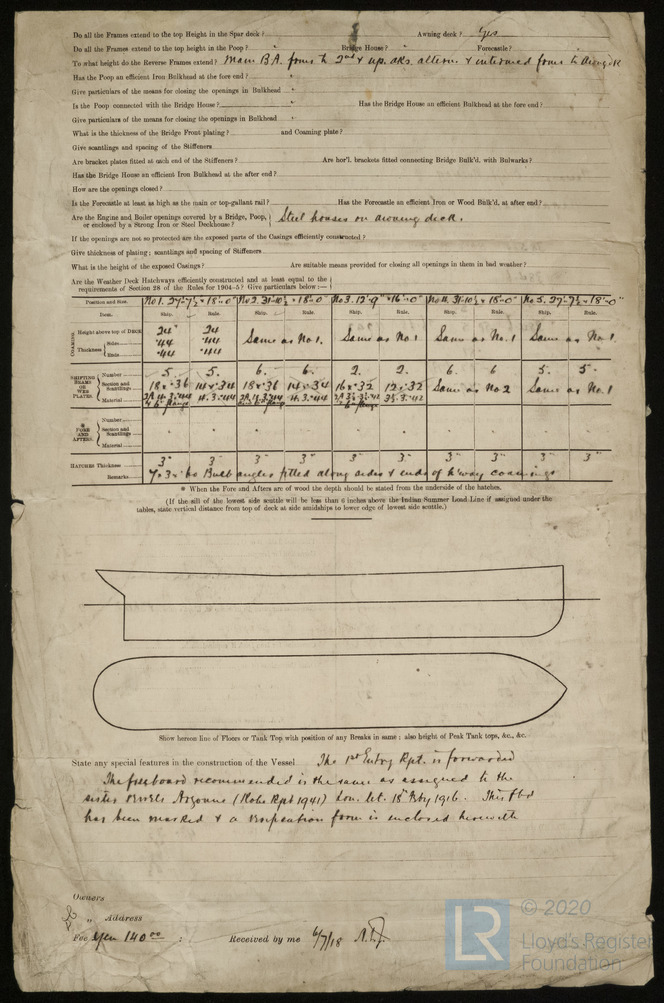 Do all the Frames extend to the top Height in the Spar deck ? Awning deck ? Yes
Do all the Frames extend to the top height in the Poop ? " Bridge House ? " Forecastle ? "
To what height do the Reverse Frames extend ? Main B.A. frms to 2nd & up. dks. altern. & intermed frms to awng dk
Has the Poop an efficient Iron Bulkhead at the fore end ? "
Give particulars of the means for closing the openings in Bulkhead "
Is the Poop connected with the Bridge House ? " Has the Bridge House an efficient Bulkhead at the fore end ?
Give particulars of the means for closing the openings in Bulkhead "
What is the thickness of the Bridge Front plating ? and Coaming plate ?
Give scantlings and spacing of the Stiffeners
Are bracket plates fitted at each end of the Stiffeners ? Are hor'l. brackets fitted connecting Bridge Bulk'd. with Bulwarks ?
Has the Bridge House an efficient Iron Bulkhead at the after end ?
How are the openings closed ?
Is the Forecastle at least as high as the main or top-gallant rail ? Has the Forecastle an efficient Iron or Wood Bulk'd, at after end ?
Are the Engine and Boiler openings covered by a Bridge, Poop, or enclosed by a Strong Iron or Steel Deckhouse ? Steel houses on awning deck.
If the openings are not so protected are the exposed parts of the Casings efficiently constructed ?
Give thickness of plating; scantlings and spacing of Stiffeners
What is the height of the exposed Casings ? Are suitable means provided for closing all openings in them in bad weather ?
Are the Weather Deck Hatchways efficiently constructed and at least equal to the
requirements of Section 28 of the Rules for 1904-5 ? Give particulars below :—
Position and Size. No 1. 27-7½ × 18'-0" No 2. 31-10½ × 18-0" No 3. 12'-9" × 16'-0" No 4. 31-10½ × 18'-0" No 5. 27-7½ × 18'-0"
Item. Ship. Rule. Ship. Rule. Ship. Rule. Ship. Rule. Ship. Rule.
COAMING Height above top of DECK 24" 24 Same as No 1. Same as No 1 Same as No 1 Same as No 1
Thickness Sides .44 .44
Ends .44 .44
SHIFTING BEAMS OR WEB PLATES. Number 5. 5. 6. 6. 2. 2. 6 6 5 5.
Section and Scantlings 18 × .36 14 × .34 18 × .36 14 × .34 16 × .32 12 × .32 Same as No 2 Same as No 1
Material
* FORE AND AFTERS. Number
Section and Scantlings
Material
HATCHES Thickness 3" 3" 3" 3" 3" 3" 3" 3" 3" 3"
Remarks 7 × 3 × Bulb angles fitted along sides & ends of h'way coamings
* When the Fore and Afters are of wood the depth should be stated from the underside of the hatches.
(If the sill of the lowest side scuttle will be less than 6 inches above the Indian Summer Load Line if assigned under the
tables, state vertical distance from top of deck at side amidships to lower edge of lowest side scuttle.)
Show hereon line of Floors or Tank Top with position of any Breaks in same ; also height of Peak Tank tops, &c., &c.
State any special features in the construction of the Vessel The 1st Entry Rpt. is forwarded
The freeboard recommended is the same as assigned to the
sister vessels Argonne (Kobe Rpt 1941) Lon. let. 18 Feby 1916. This fbd
has been marked & a verification form is enclosed herewith
Owners
" Address
Fee Yen 140 00 : Received by me 6/7/18
LR
© 2020
Lloyd's Register
Foundation